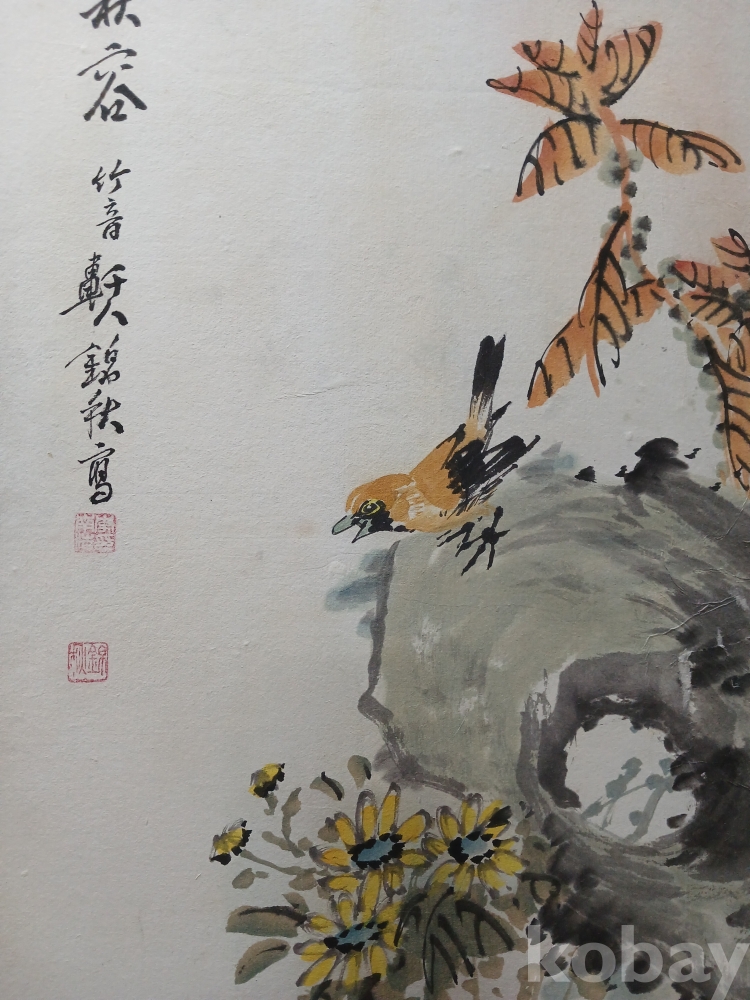 秋容
竹音軒人錦秋寫
錦秋
kobay